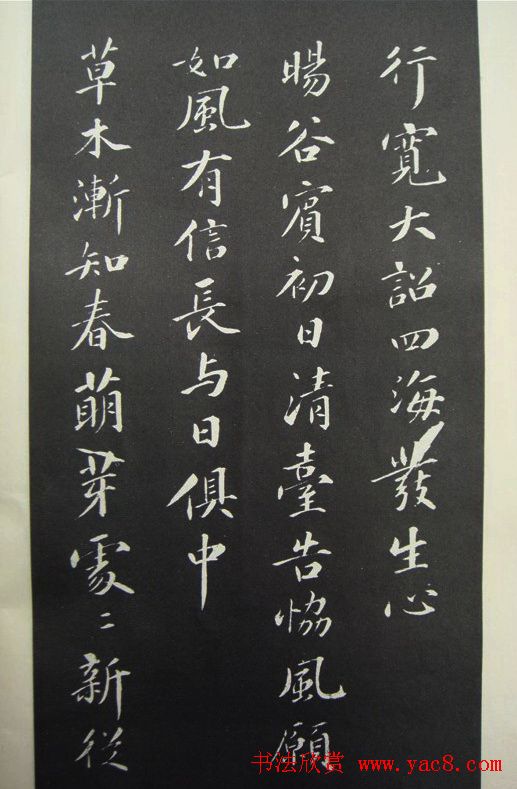 行寬大詔四海發生心
暘谷賓初日清臺告協風願
如風有信長与日俱中
草木漸知春萌芽處〻新從
书法欣赏 www.yac8.com